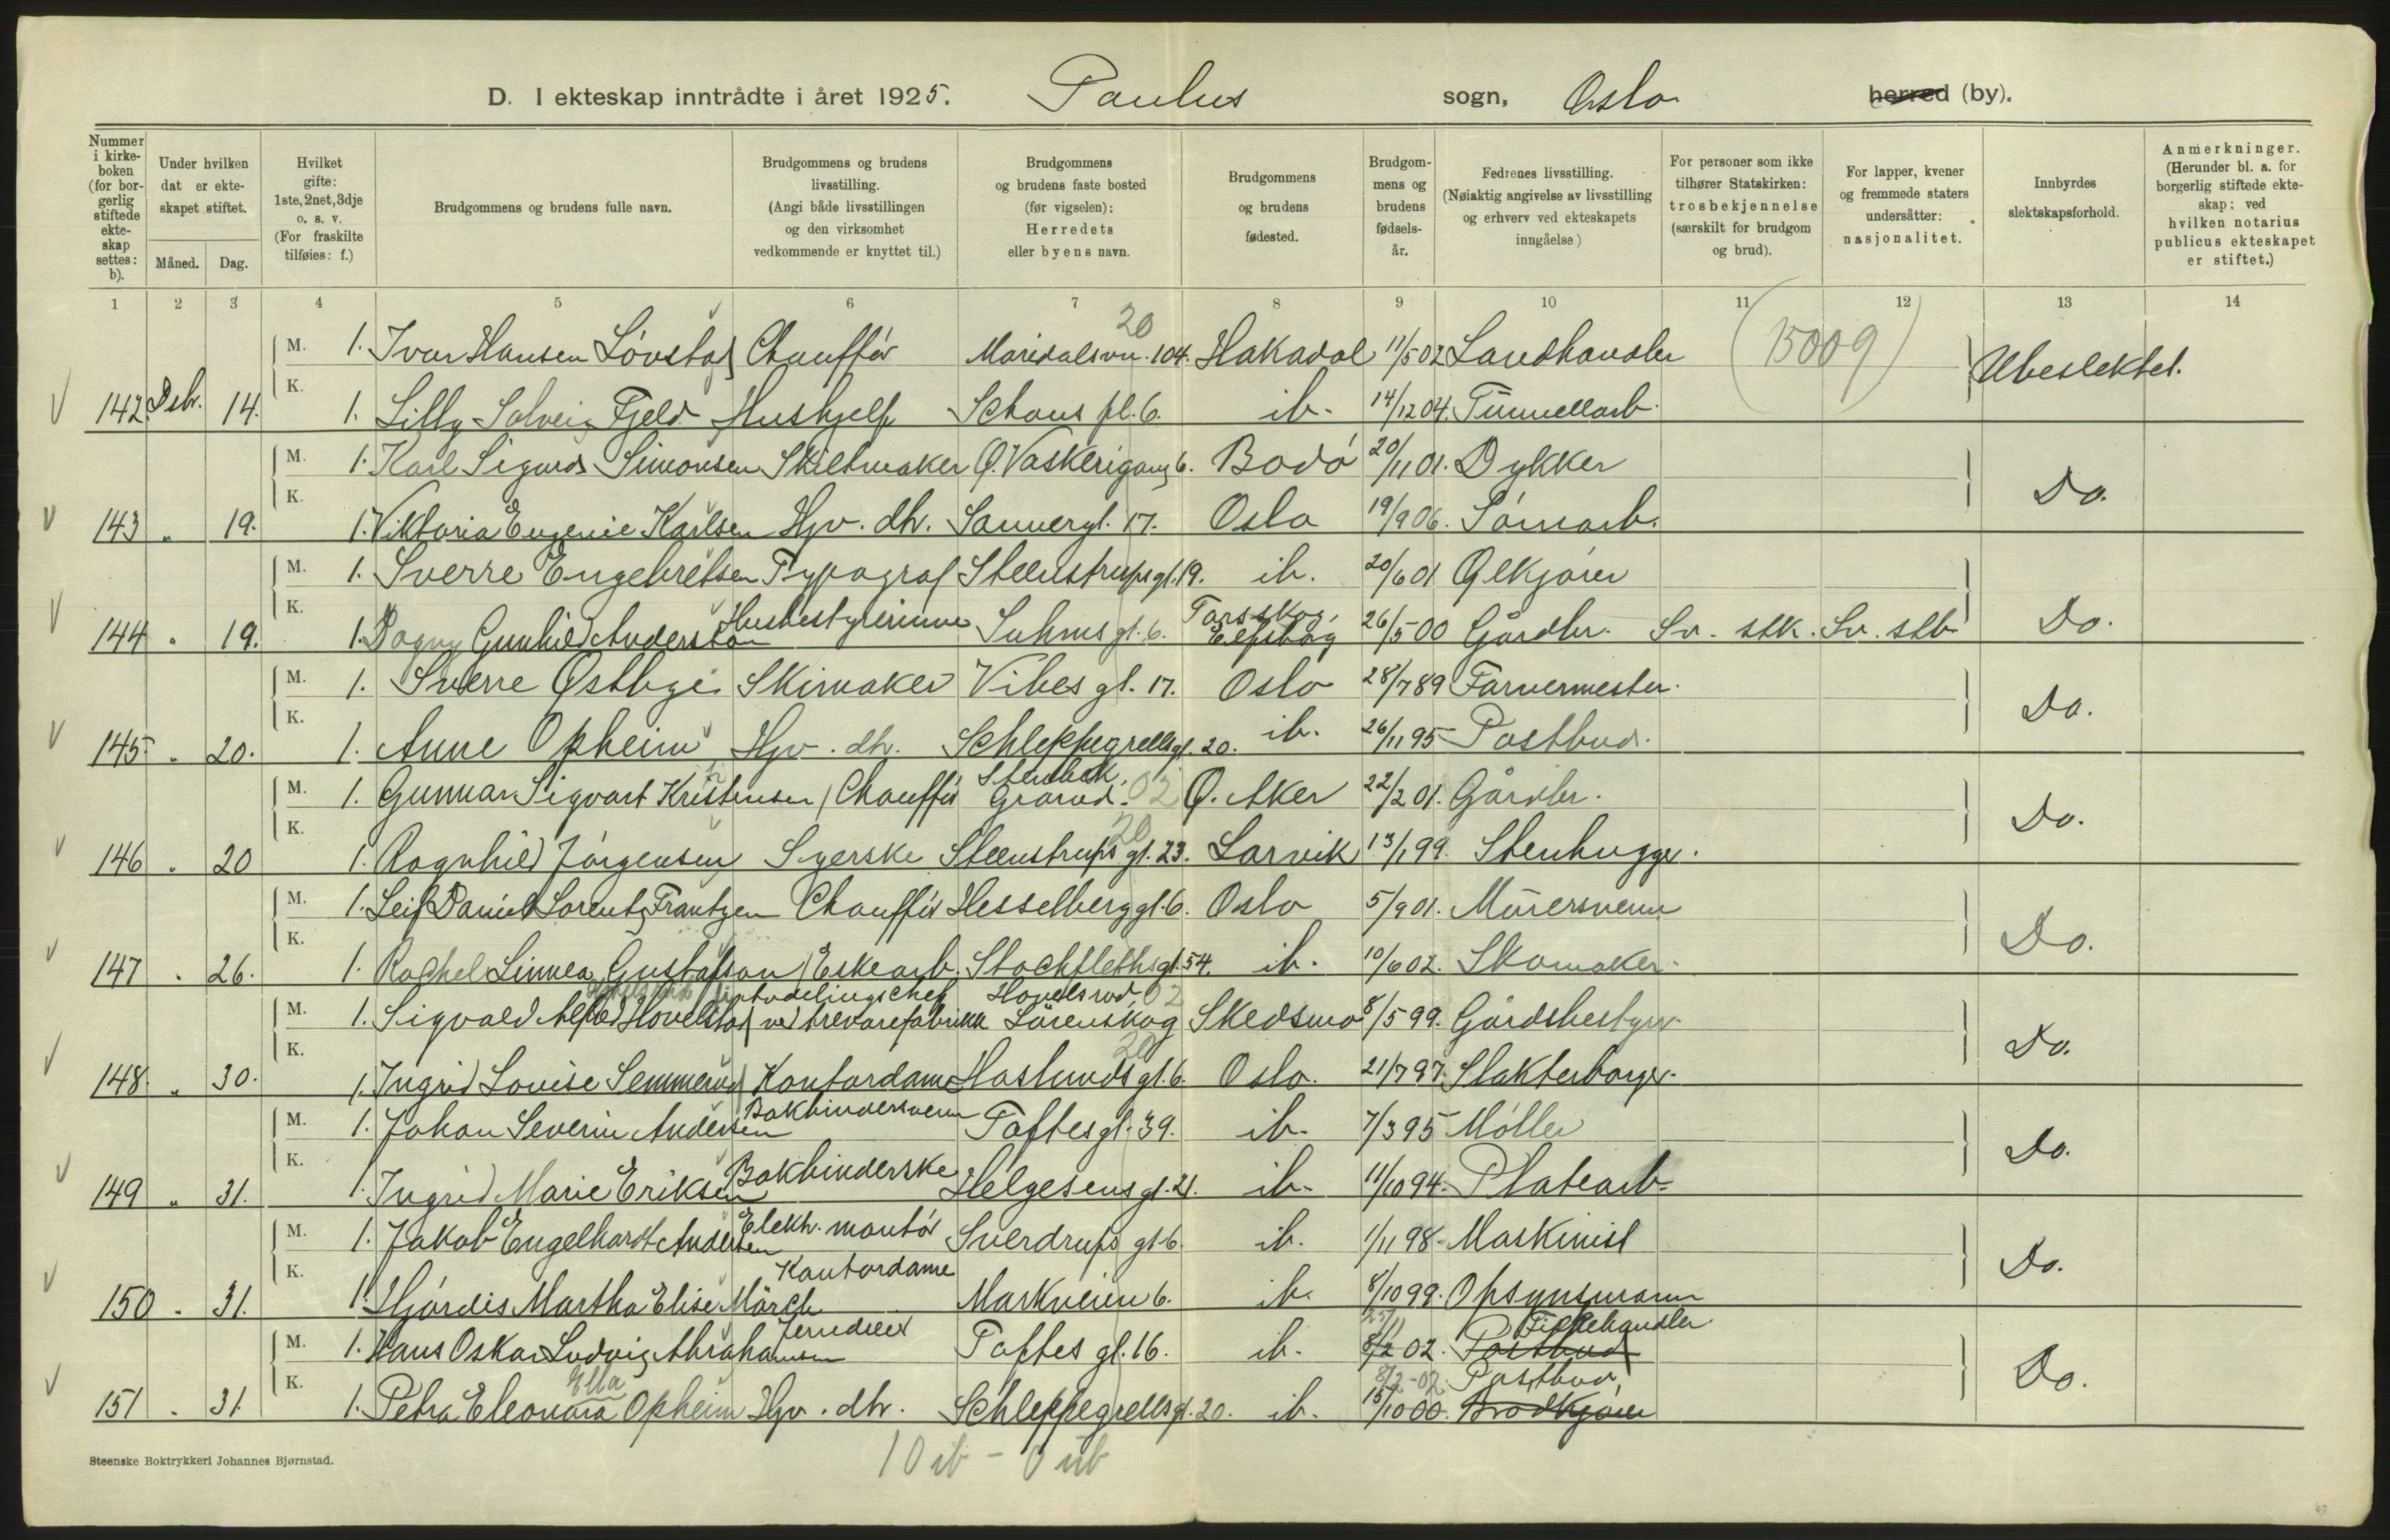 D. I ekteskap inntrådte i året 1925. Paulus sogn, Oslo herred (by).
Nummer i kirkeboken (for borgerlig stiftede ekteskap settes: b).
Under hvilken dat er ekteskapet stiftet.
Måned. Dag.
Hvilket gifte: 1ste, 2net, 3dje o. s. v. (For fraskilte tilføies: f.)
Brudgommens og brudens fulle navn.
Brudgommens og brudens livsstilling. (Angi både livsstillingen og den virksomhet vedkommende er knyttet til.)
Brudgommens og brudens faste bosted (før vigselen): Herredets eller byens navn.
Brudgommens og brudens fødested.
Brudgommens og brudens fødselsår.
Fedrenes livsstilling. (Nøiaktig angivelse av livsstilling og erhverv ved ekteskapets inngåelse)
For personer som ikke tilhører Statskirken: trosbekjennelse (særskilt for brudgom og brud).
For lapper, kvener og fremmede staters undersåtter: nasjonalitet.
Innbyrdes slektskapsforhold.
Anmerkninger. (Herunder bl. a. for borgerlig stiftede ekteskap: ved hvilken notarius publicus ekteskapet er stiftet.)
1 2 3 4 5 6 7 8 9 10 11 12 13 14
20
M. 1. Ivar Hansen Løvstad Chauffør Maridalsvn. 104. Hakadal 11/5 02 Landhandler (15009) Ubeslektet.
142 Dsbr. 14. K. 1. Lilly Solveig Fjeld Hushjelp Schous pl. 6. ib. 14/12 04. Tunnellarb.
M. 1. Karl Sigurds Simonsen Skiltmaker Ø. Vaskerigang 6. Bodø 20/11 01. Dykker
143 " 19. K. 1. Viktoria Eugenie Karlsen Hjv. dtr. Sannergt. 17. Oslo 19/9 06. Tømarb. Do.
M. 1. Sverre Engebretsen Typograf Steenstrupsgt. 19. ib. 20/6 01 Ølkjører
144 " 19. K. 1. Dagny Gunhild Andersson Husbestyrerinne Suhms gt. 6. Torsskog, Elfsborg 26/5 00 Gårdbr. Sv. stk. Sv. stb. Do.
M. 1. Sverre Østbye Skimaker Vibes gt. 17. Oslo 28/7 89 Farvermester.
145 " 20. K. 1. Anne Opheim Hjv. dtr. Schleppegrellsgt. 20. ib. 26/11 95 Postbud. Do.
M. 1. Gunnar Sigvart Kristensen Chauffør Stenbek, Grorud. 02 Ø. Aker 22/2 01. Gårdbr.
146 " 20 K. 1. Ragnhild Jørgensen Syerske Steenstrups gt. 23. 20 Larvik 13/1 99. Stenhugger. Do.
M. 1. Leif Daniel Lorentz Frantzen Chauffør Hesselberggt. 6. Oslo 5/9 01. Murersvenn
147 " 26. K. 1. Rachel Linnea Gustafson Eskearb. Stockflethsgt. 54. ib. 10/6 02. Skomaker. Do.
M. 1. Sigvald Alfred Hovelstad avdelingschef ved trevarefabrikk Hovelsrud, Lørenskog 02 Skedsmo 8/5 99. Gårdsbestyrer
148. " 30. K. 1. Ingrid Lovise Semmerud Kontordame Haslunds gt. 6. 20 Oslo. 21/7 97. Slakterborger. Do.
M. 1. Johan Severin Andersen Bokbindersvenn Toftesgt. 39. ib. 7/3 95 Møller
149 " 31. K. 1. Ingrid Marie Eriksen Bokbinderske Helgesens gt. 21. ib. 11/10 94. Platearb. Do.
M. 1. Jakob Engelhardt Andersen Elektr. montør Sverdrups gt. 6. ib. 1/11 98. Maskinist
150 " 31. K. 1. Hjørdis Martha Elise Mörch Kontordame Markveien 6. ib. 8/10 99. Opsynsmann Do.
M. 1. Hans Oskar Ludvig Abrahamsen Jerndreier Toftes gt. 16. ib. 8/2 02. Fiskehandler Postbud
151 " 31. K. 1. Petra Eleonora Ella Opheim Hjv. dtr. Schleppegrellsgt. 20. ib. 8/2-02 15/10 00. Postbud, Brødkjører Do.
Steenske Boktrykkeri Johannes Bjørnstad.
10 ib - 0 ub